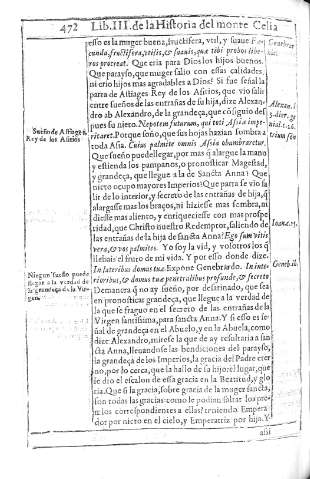 472 Lib. III. de la Historia del monte Celia
esso es la muger buena, fructifera, vtil, y suaue Foe
cunda, fructifera, vtilis, & suauis, quæ tibi probos libe-
ros procreat. Que cria para Dios los hijos buenos.
Que parayso, que muger salio con essas calidades,
ni crio hijos mas agradables a Dios? Si fue señal la
parra de Astiages Rey de los Assios, que vio salir
entre sueños de las entrañas de su hija, dize Alexan-
dro ab Alexandro, de la grandeça, que cõsiguio des
pues su nieto. Nepotem futurum, qui toti Asiæ impe-
ritaret. Porque soño, que sus hojas hazian sombra a
toda Asia. Cuius palmite omnis Asia obumbraretur.
Que sueño puede llegar, por mas q̃ alargue la mano
y estienda los pampanos, o pronosticar Magestad,
y grandeça, que llegue a la de Sancta Anna? Que
nieto ocupo mayores Imperios? Que parra se vio sa
lir de lo interior, y secreto de las entrañas de hija, q̃
alargesse mas los braços, ni hiziesse mas sembra, ni
diesse mas aliento, y enriqueciesse con mas prospe
ridad, que Christo nuestro Redemptor, saliendo de
las entrañas de la hija de sancta Anna? Ego sum vitis
vera, & vos palmites. Yo soy la vid, y vosotros los q̃
lleuais el fruto de mi vida. Y por esso donde dize.
In lateribus domus tuæ. Expone Genebrardo. In inte-
rioribus, & domus tuæ penetralibus profunde, & secreto
Demanera q̃ no ay sueño, por desatinado, que sea
en pronosticar grandeça, que llegue a la verdad de
la que se fraguo en el secreto de las entrañas de la
Virgen santissima, para sancta Anna. Y si esso es se
ñal de grandeça en el Abuelo, y en la Abuela, como
dize Alexandro, mirese la que de ay resultaria a san
cta Anna, lleuandose las bendiciones del parayso,
la grandeça de los Imperios, la gracia del Padre eter
no, por lo cerca, que la hallo de su hijo: el lugar, que
se dio el escalon de essa gracia en la Beatitud, y glo
ria. Que si la gracia, sobre gracia de la muger sancta,
son todas las gracias: como le podian faltar los pre-
mios correspondientes a ellas? teniendo Empera
dor por nieto en el cielo, y Emperatriz por hija. Y
assi
Genebrar
Sueño de Astiages
Rey de los Assios
Ioann. 15.
Genebr.
Ningun sueño puede
llegar a la verdad de
la grandeça de la Vir
gen.